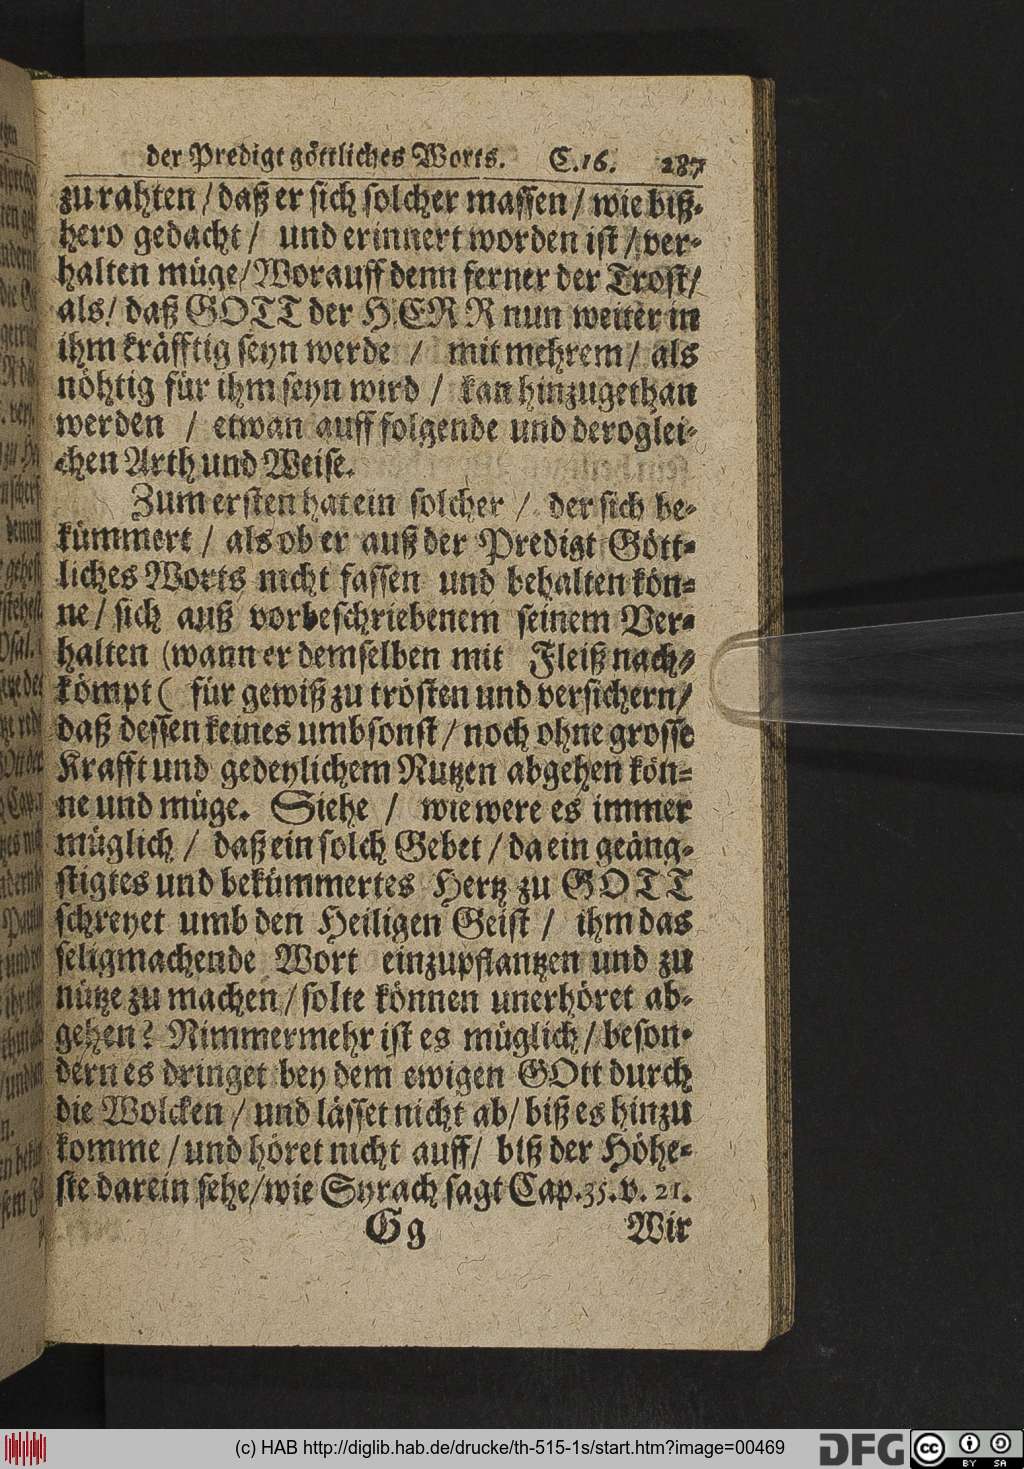 der Predigt göttliches Worts. C.16. 287
zu rahten / daß er sich solcher massen / wie biß-
hero gedacht / und erinnert worden ist / ver-
halten müge/ Worauff denn ferner der Trost/
als/ daß GOTT der HERR nun weiter in
ihm kräfftig seyn werde / mit mehrem / als
nöhtig für ihm seyn wird / kan hinzugethan
werden / etwan auff folgende und deroglei-
chen Arth und Weise.
Zum ersten hat ein solcher / der sich be-
kümmert / als ob er auß der Predigt Gött-
liches Worts nicht fassen und behalten kön-
ne / sich auß vorbeschriebenem seinem Ver-
halten (wann er demselben mit Fleiß nach-
kömpt ( für gewiß zu trösten und versichern/
daß dessen keines umbsonst / noch ohne grosse
Krafft und gedeylichem Nutzen abgehen kön-
ne und müge. Siehe / wie were es immer
müglich / daß ein solch Gebet / da ein geäng-
stigtes und bekümmertes Hertz zu GOTT
schreyet umb den Heiligen Geist / ihm das
seligmachende Wort einzupflantzen und zu
nütze zu machen / solte können unerhöret ab-
gehen? Nimmermehr ist es müglich / beson-
dern es dringet bey dem ewigen GOtt durch
die Wolcken / und lässet nicht ab / biß es hinzu
komme / und höret nicht auff / biß der Höhe-
ste darein sehe / wie Syrach sagt Cap. 35. v. 21.
Gg Wir
(c) HAB http://diglib.hab.de/drucke/th-515-1s/start.htm?image=00469
DFG
cc BY SA